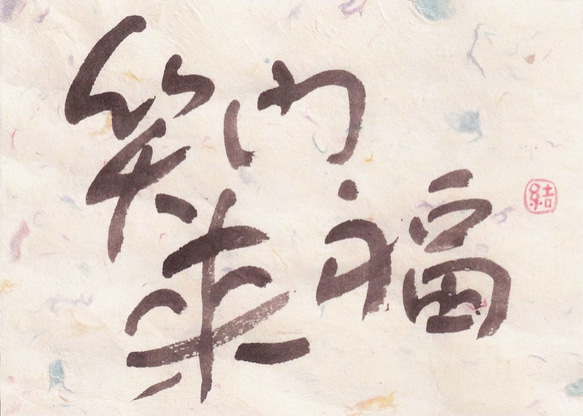 笑門
来福
結